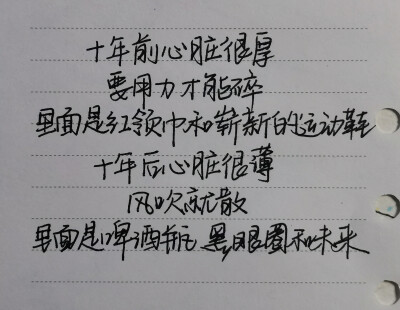 十年前心脏很厚
要用力才能碎
里面是红领巾和崭新的运动鞋
十年后心脏很薄
风吹就散
里面是啤酒瓶 黑眼圈和未来